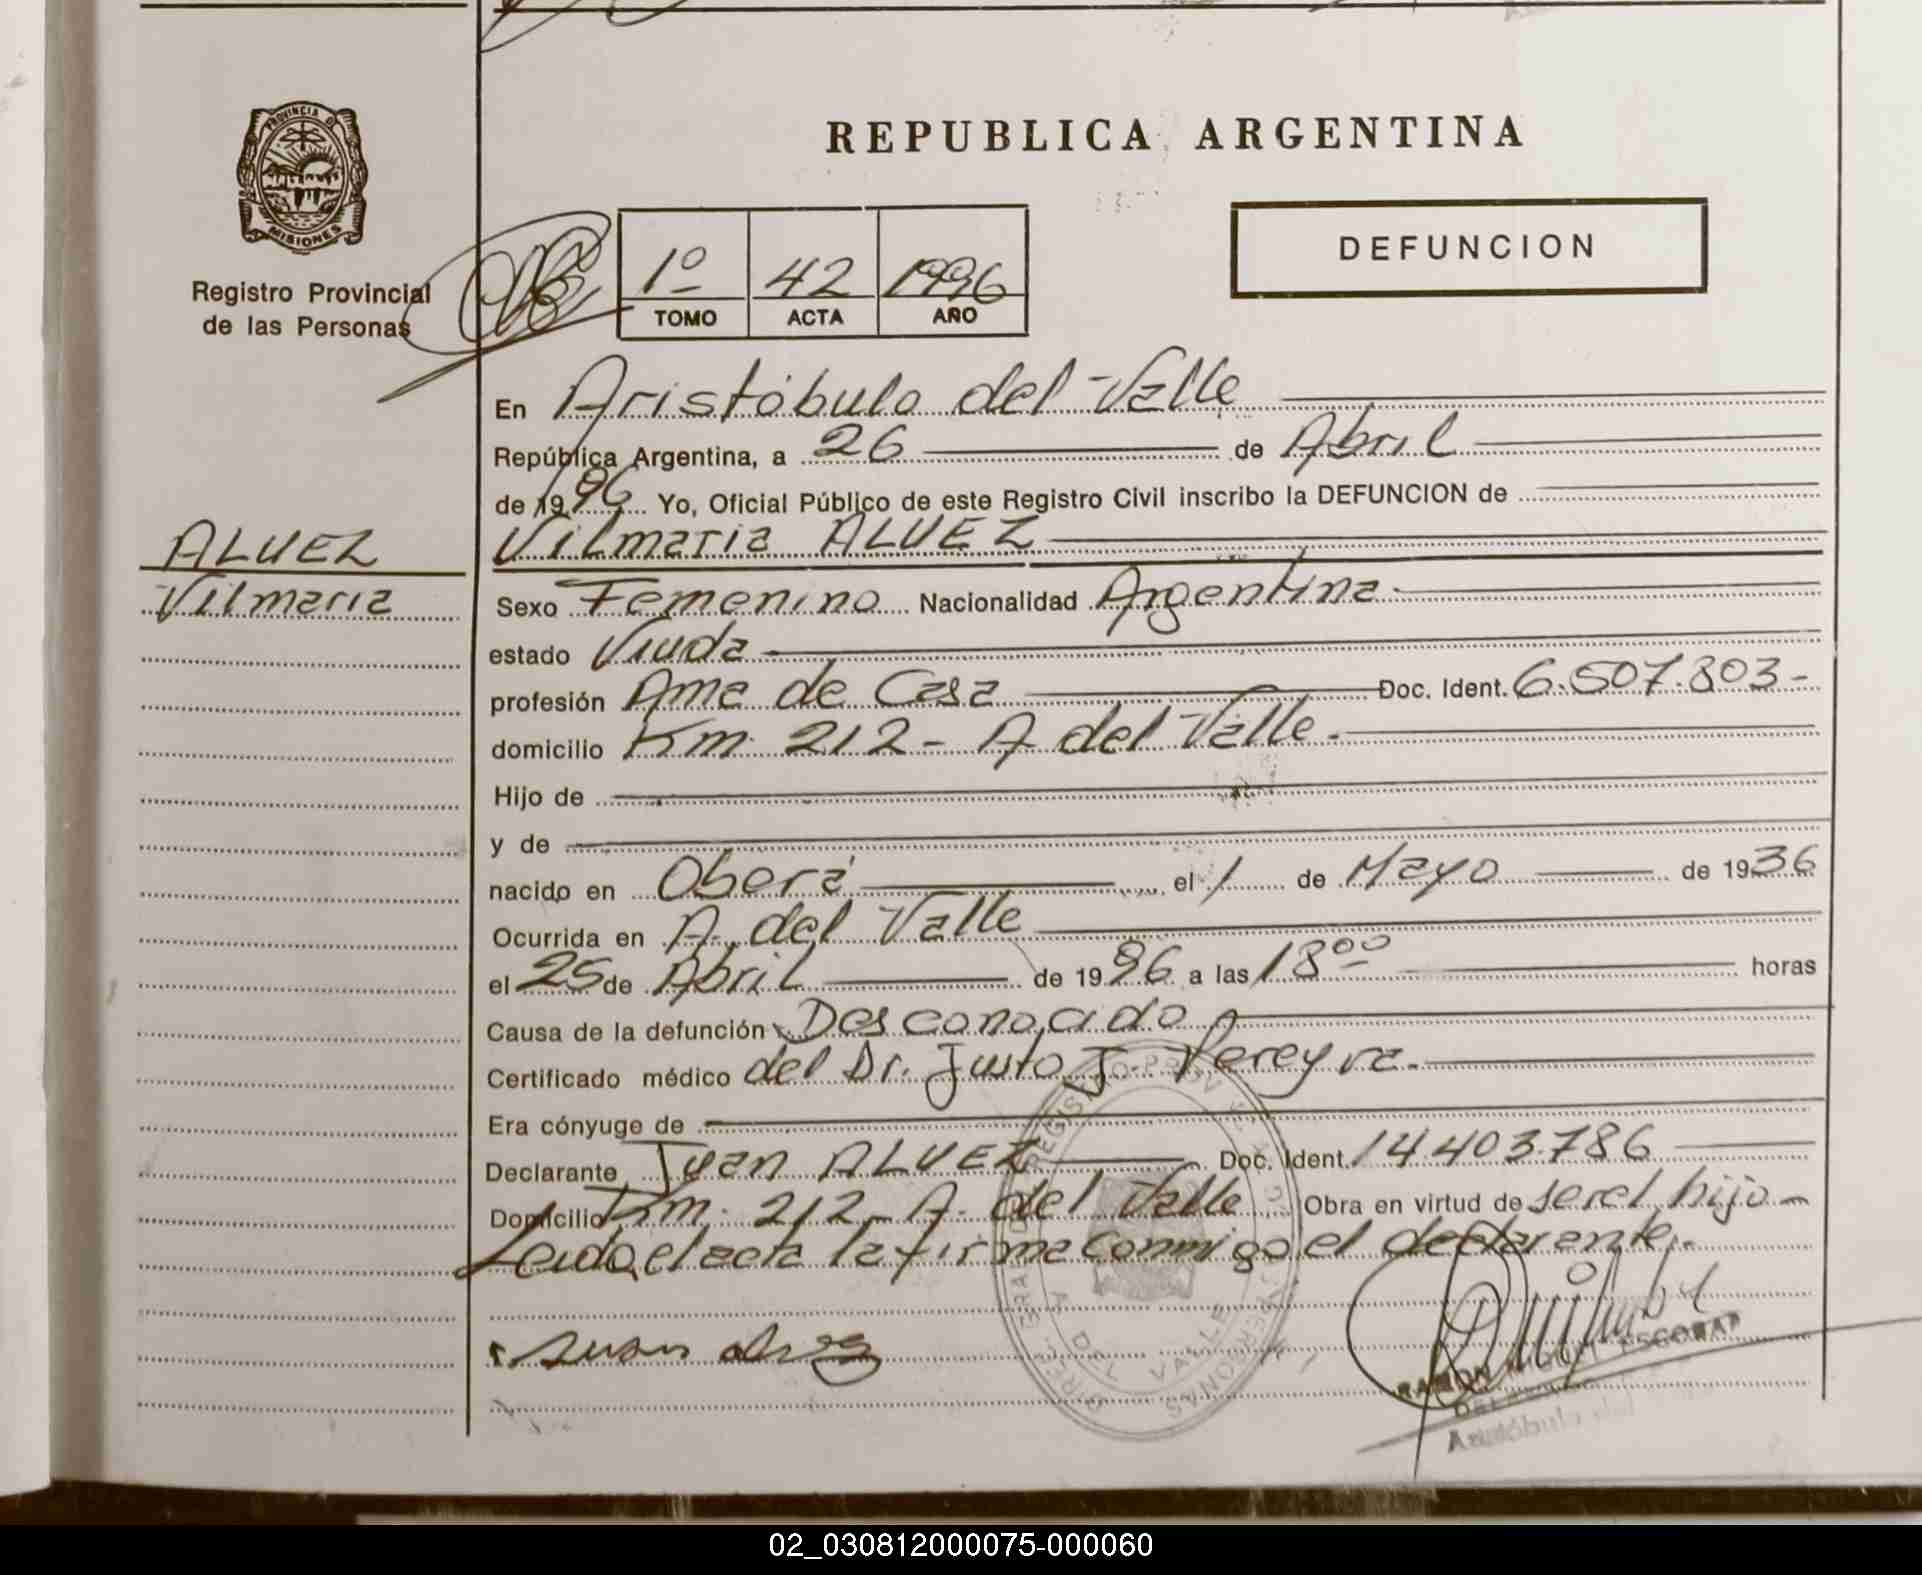 PROVINCIA D
MISIONES
Registro Provincial
de las Personas
REPUBLICA ARGENTINA
1º 42 1996
TOMO ACTA AÑO
DEFUNCION
En Aristóbulo del Valle
República Argentina, a 26 de Abril
de 1996 Yo, Oficial Público de este Registro Civil inscribo la DEFUNCION de
ALVEZ
Vilmaria ALVEZ
Vilmaria
Sexo Femenino Nacionalidad Argentina
estado Viuda
profesión Ama de Casa Doc. Ident. 6.507.803-
domicilio Km 212 - A del Valle.
Hijo de
y de
nacido en Oberá el 1 de Mayo de 1936
Ocurrida en A. del Valle
el 25 de Abril de 1996 a las 18⁰⁰ horas
Causa de la defunción Desconocido
Certificado médico del Dr. Justo J. Pereyra.
Era cónyuge de
Declarante Juan ALVEZ Doc. Ident. 14.403.786
Domicilio Km. 212 - A. del Valle Obra en virtud de ser el hijo
Leida el acta la firma conmigo el declarante.
Juan alvez
A. DEL VALLE
RAMON MIGUEL ESCOBAR
Aristóbulo del
02_030812000075-000060